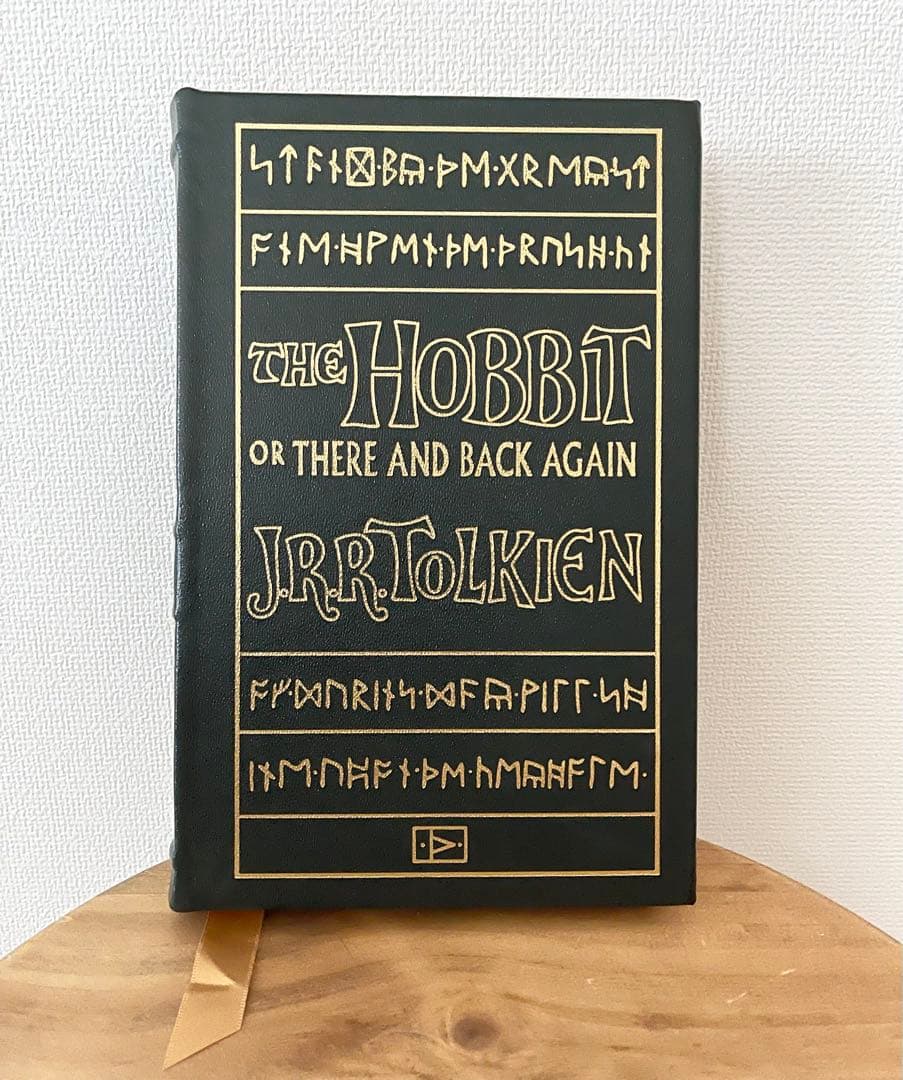 ᛋᛏᚪᚾᛞ·ᛒᚣ·ᚦᛖ·ᚷᚱᛖᚣᛋᛏ
ᚩᚾᛖ·ᚻᚹᛖᚾ·ᚦᛖ·ᚦᚱᚢᛋᚻ·ᚳᚾ
THE HOBBIT
OR THERE AND BACK AGAIN
J.R.R. TOLKIEN
ᚩᚠ·ᛞᚢᚱᛁᚾᛋ·ᛞᚪᚣ·ᚹᛁᛚᛚ·ᛋᚻ
ᛁᚾᛖ·ᚢᛈᚩᚾ·ᚦᛖ·ᚳᛖᚣᚻᚩᛚᛖ·